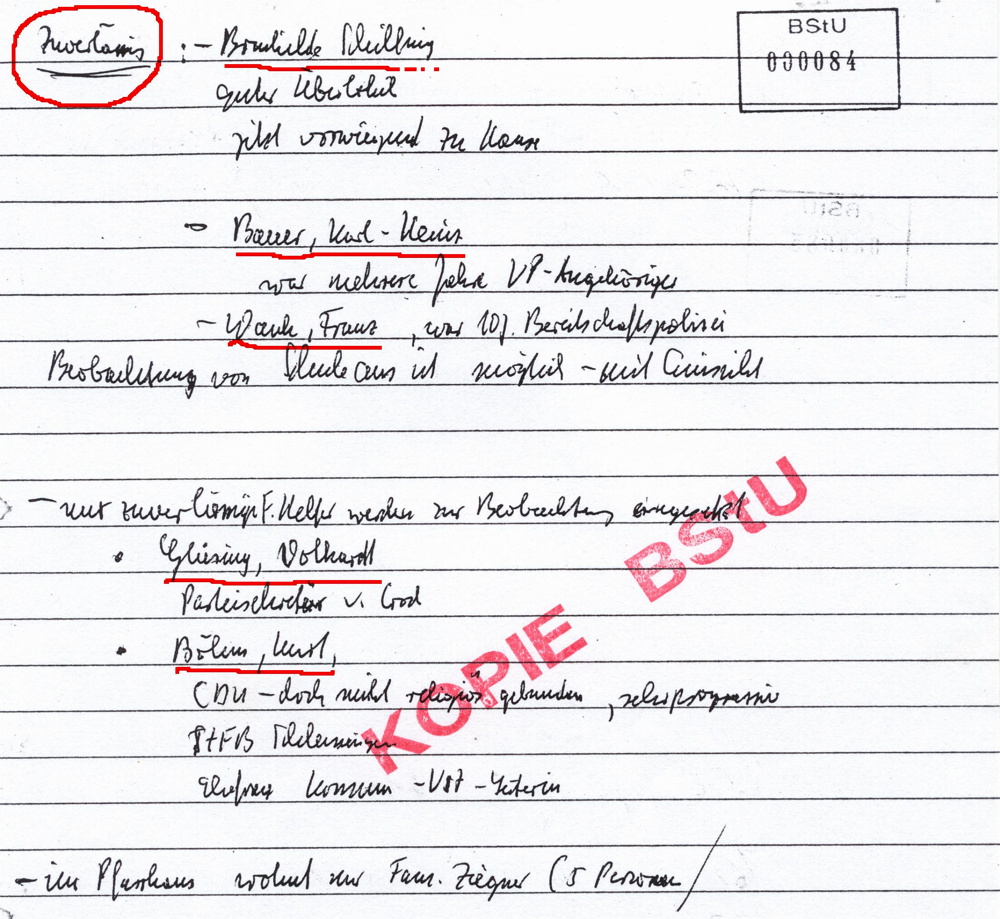 BStU
000084
Zuverlässig : – Brunhilde Schilling
guter Überblick
jetzt vorwiegend zu Hause
– Bauer, Karl-Heinz
war mehrere Jahre VP-Angehöriger
– , Franz , war 10 J. Bereitschaftspolizei
Beobachtung von aus ist möglich – mit Einsicht
– nur zuverlässige F. Helfer werden zur Beobachtung eingesetzt
• Gliesing, Volkardt
Parteisekretär v. Crod
• Böhm, Kurt,
CDU – doch nicht religiös gebunden, sehr progressiv
StFB
Ehefrau Konsum – VST – Leiterin
– im Pfarrhaus wohnt nur Fam. Ziegner (5 Personen)
KOPIE BStU